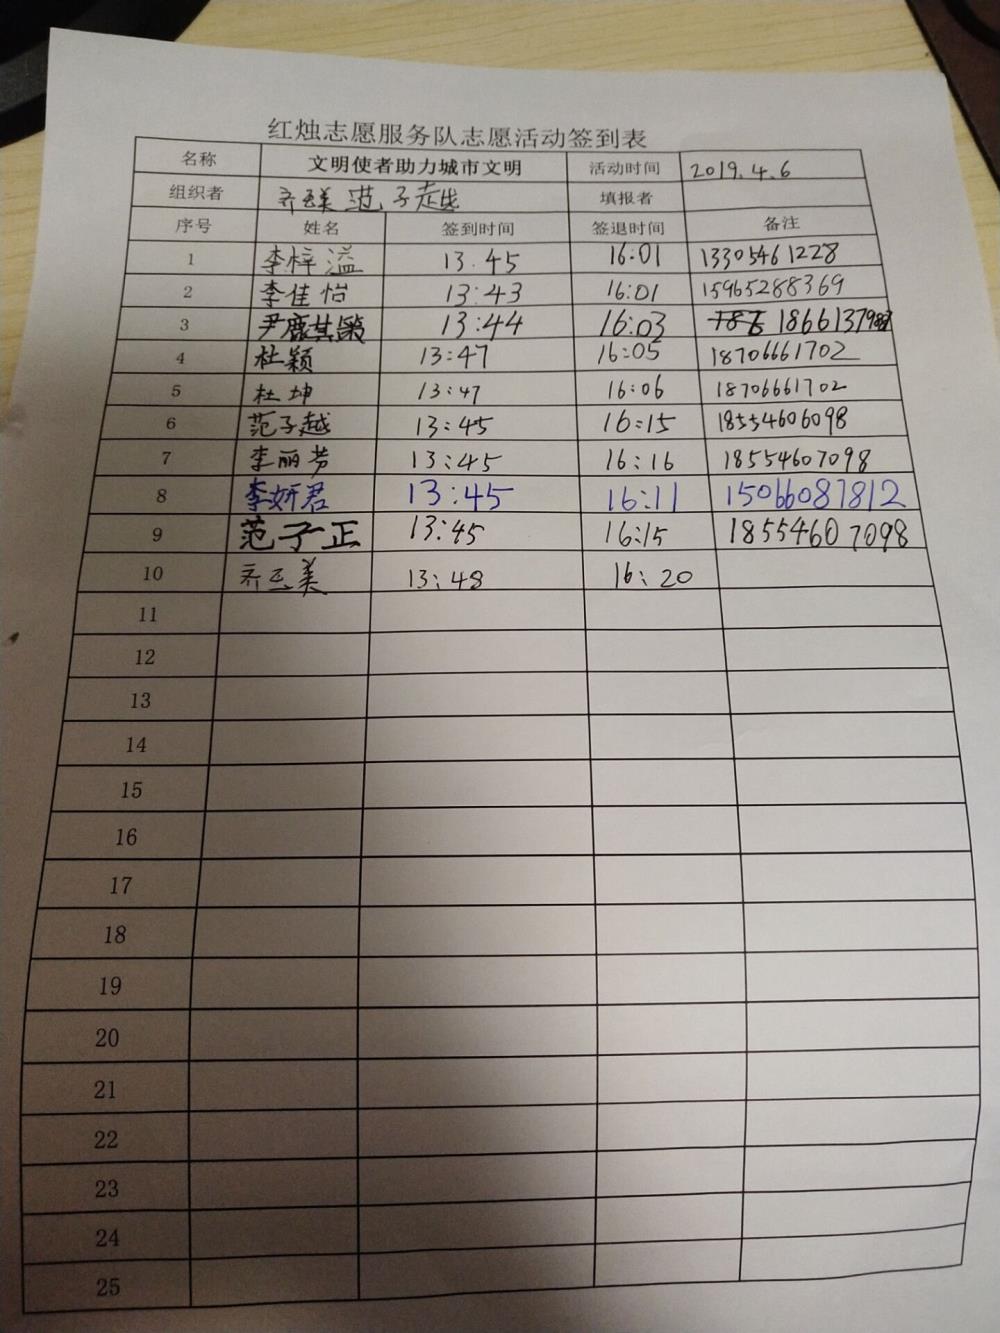 红烛志愿服务队志愿活动签到表
名称 文明使者助力城市文明 活动时间 2019.4.6
组织者 齐云美 范子越 填报者
序号 姓名 签到时间 签退时间 备注
1 李梓溢 13.45 16:01 13305461228
2 李佳怡 13:43 16:01 15965288369
3 尹鹿其 13:44 16:03
4 杜颖 13:47 16:05 18706661702
5 杜坤 13:47 16:06 18706661702
6 范子越 13:45 16:15 18554606098
7 李丽芳 13:45 16:16 18554607098
8 李妍君 13:45 16:11 15066087812
9 范子正 13:45 16:15 18554607098
10 齐云美 13:48 16:20
11
12
13
14
15
16
17
18
19
20
21
22
23
24
25